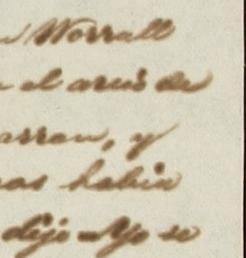 Worrall
el arus de
arran, y
as habia
dijo Yo se